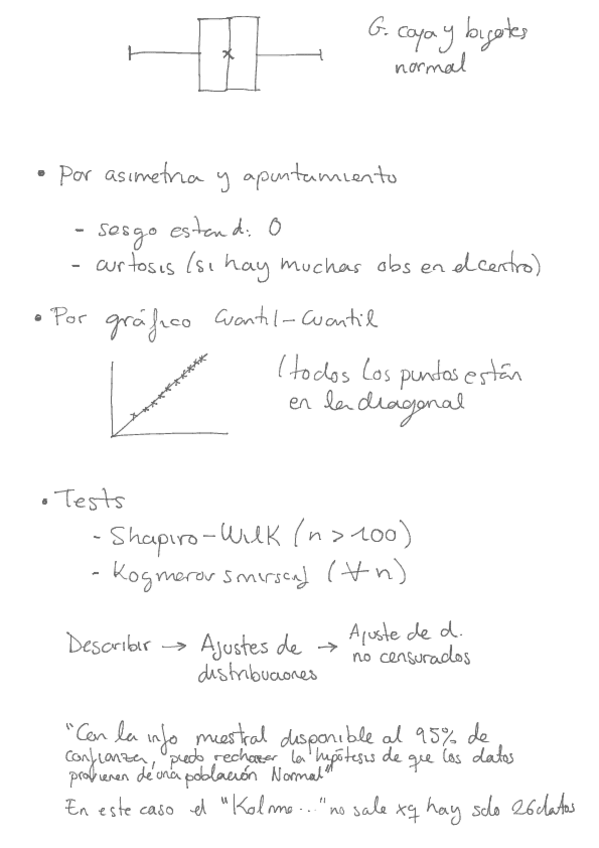 G. caja y bigotes
normal
• Por asimetria y apuntamiento
- sesgo estand: 0
- curtosis (si hay muchas obs en el centro)
• Por gráfico Cuantil-Cuantil
(todos los puntos están
en la diagonal
• Tests
- Shapiro-Wilk (n > 100)
- Kogmerov (∀n)
Describir → Ajustes de → Ajuste de d.
distribuciones no censurados
"Con la info muestral disponible al 95% de
confianza, puedo rechazar la hipótesis de que los datos
provienen de una población Normal"
En este caso el "Kolmo..." no sale xq hay solo 26 datos